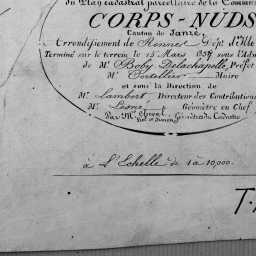 du Plan cadastral parcellaire de la Commune
CORPS-NUDS
Canton de Janzé,
Arrondissement de Rennes Dépt. d'Ille
Terminé sur le terrein le 15 Mars 18 sous l'Ad
de Mr. Boby Delachapelle, Préfet
Mr. Maire
et sous la Direction
de Mr. Lambert, Directeur des Contributions
Mr. Géomètre en Chef
Par Mr. Géomètre du Cadastre
à L'Echelle de 1 à 10,000.
T.